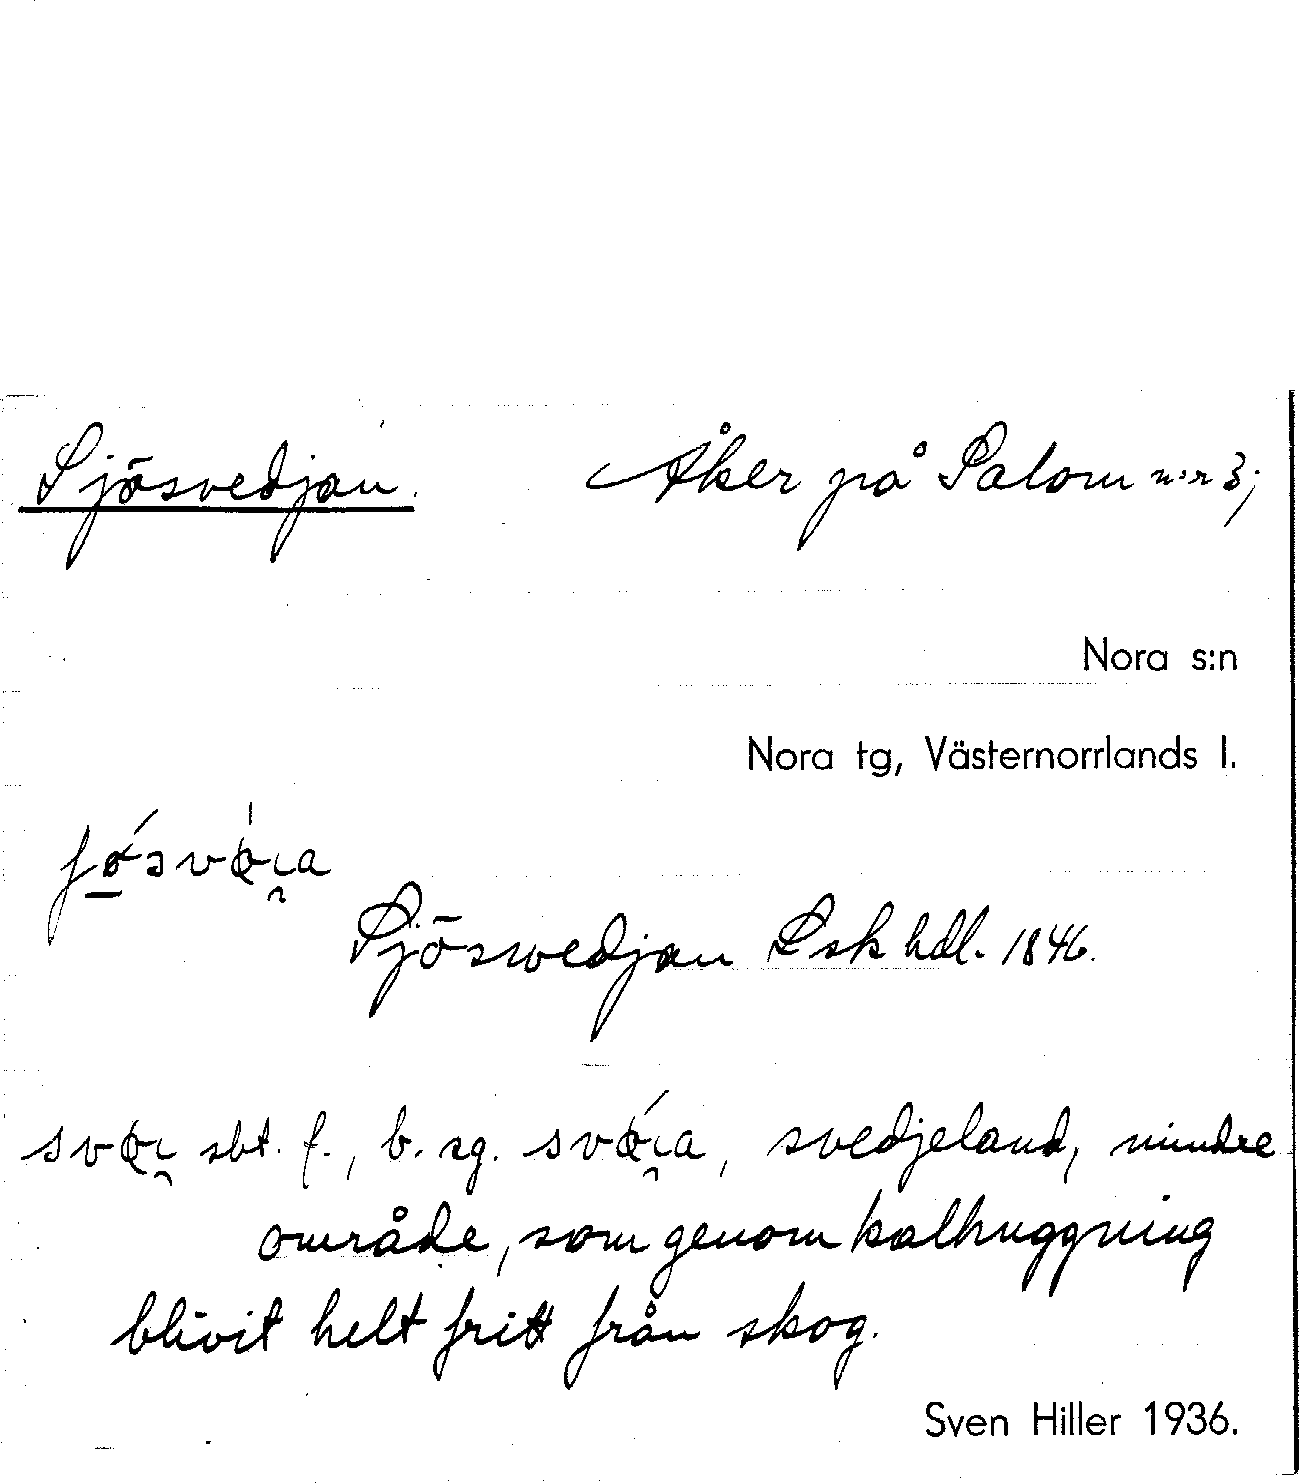 Sjösvedjan. Åker på Salom n:r 3;
Nora s:n
Nora tg, Västernorrlands l.
Sjöswedjan Lsk hdl. 1846.
sbt. f., b. sg. svedjeland, mindre
område, som genom kalhuggning
blivit helt fritt från skog.
Sven Hiller 1936.